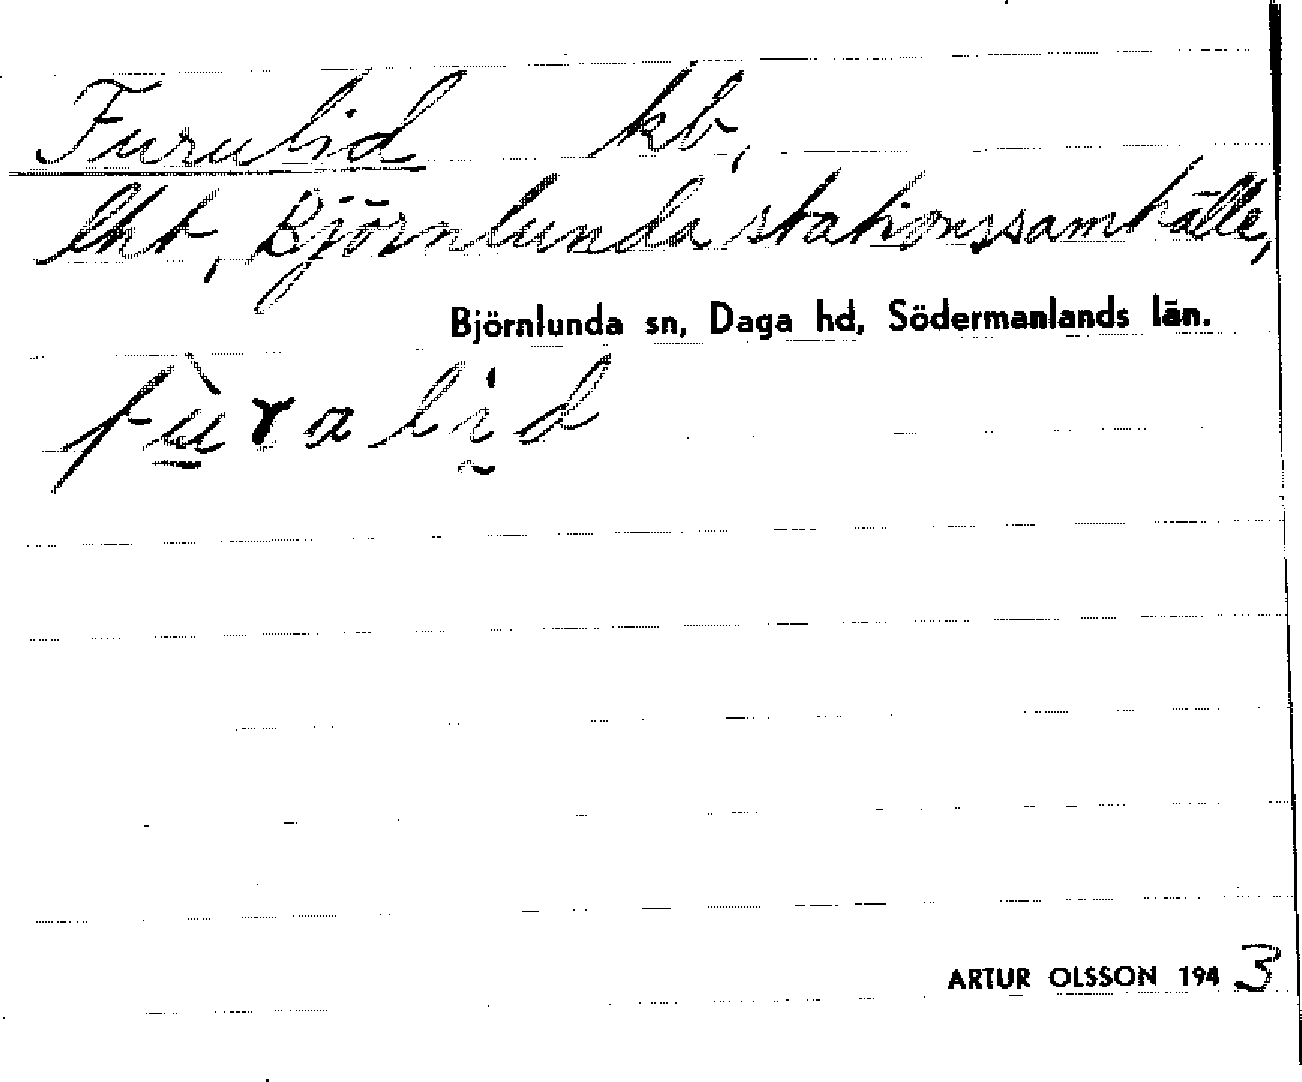 Furulid kb,
lht, Björnlunda stationssamhälle,
Björnlunda sn, Daga hd, Södermanlands län.
fùralid
ARTUR OLSSON 1943